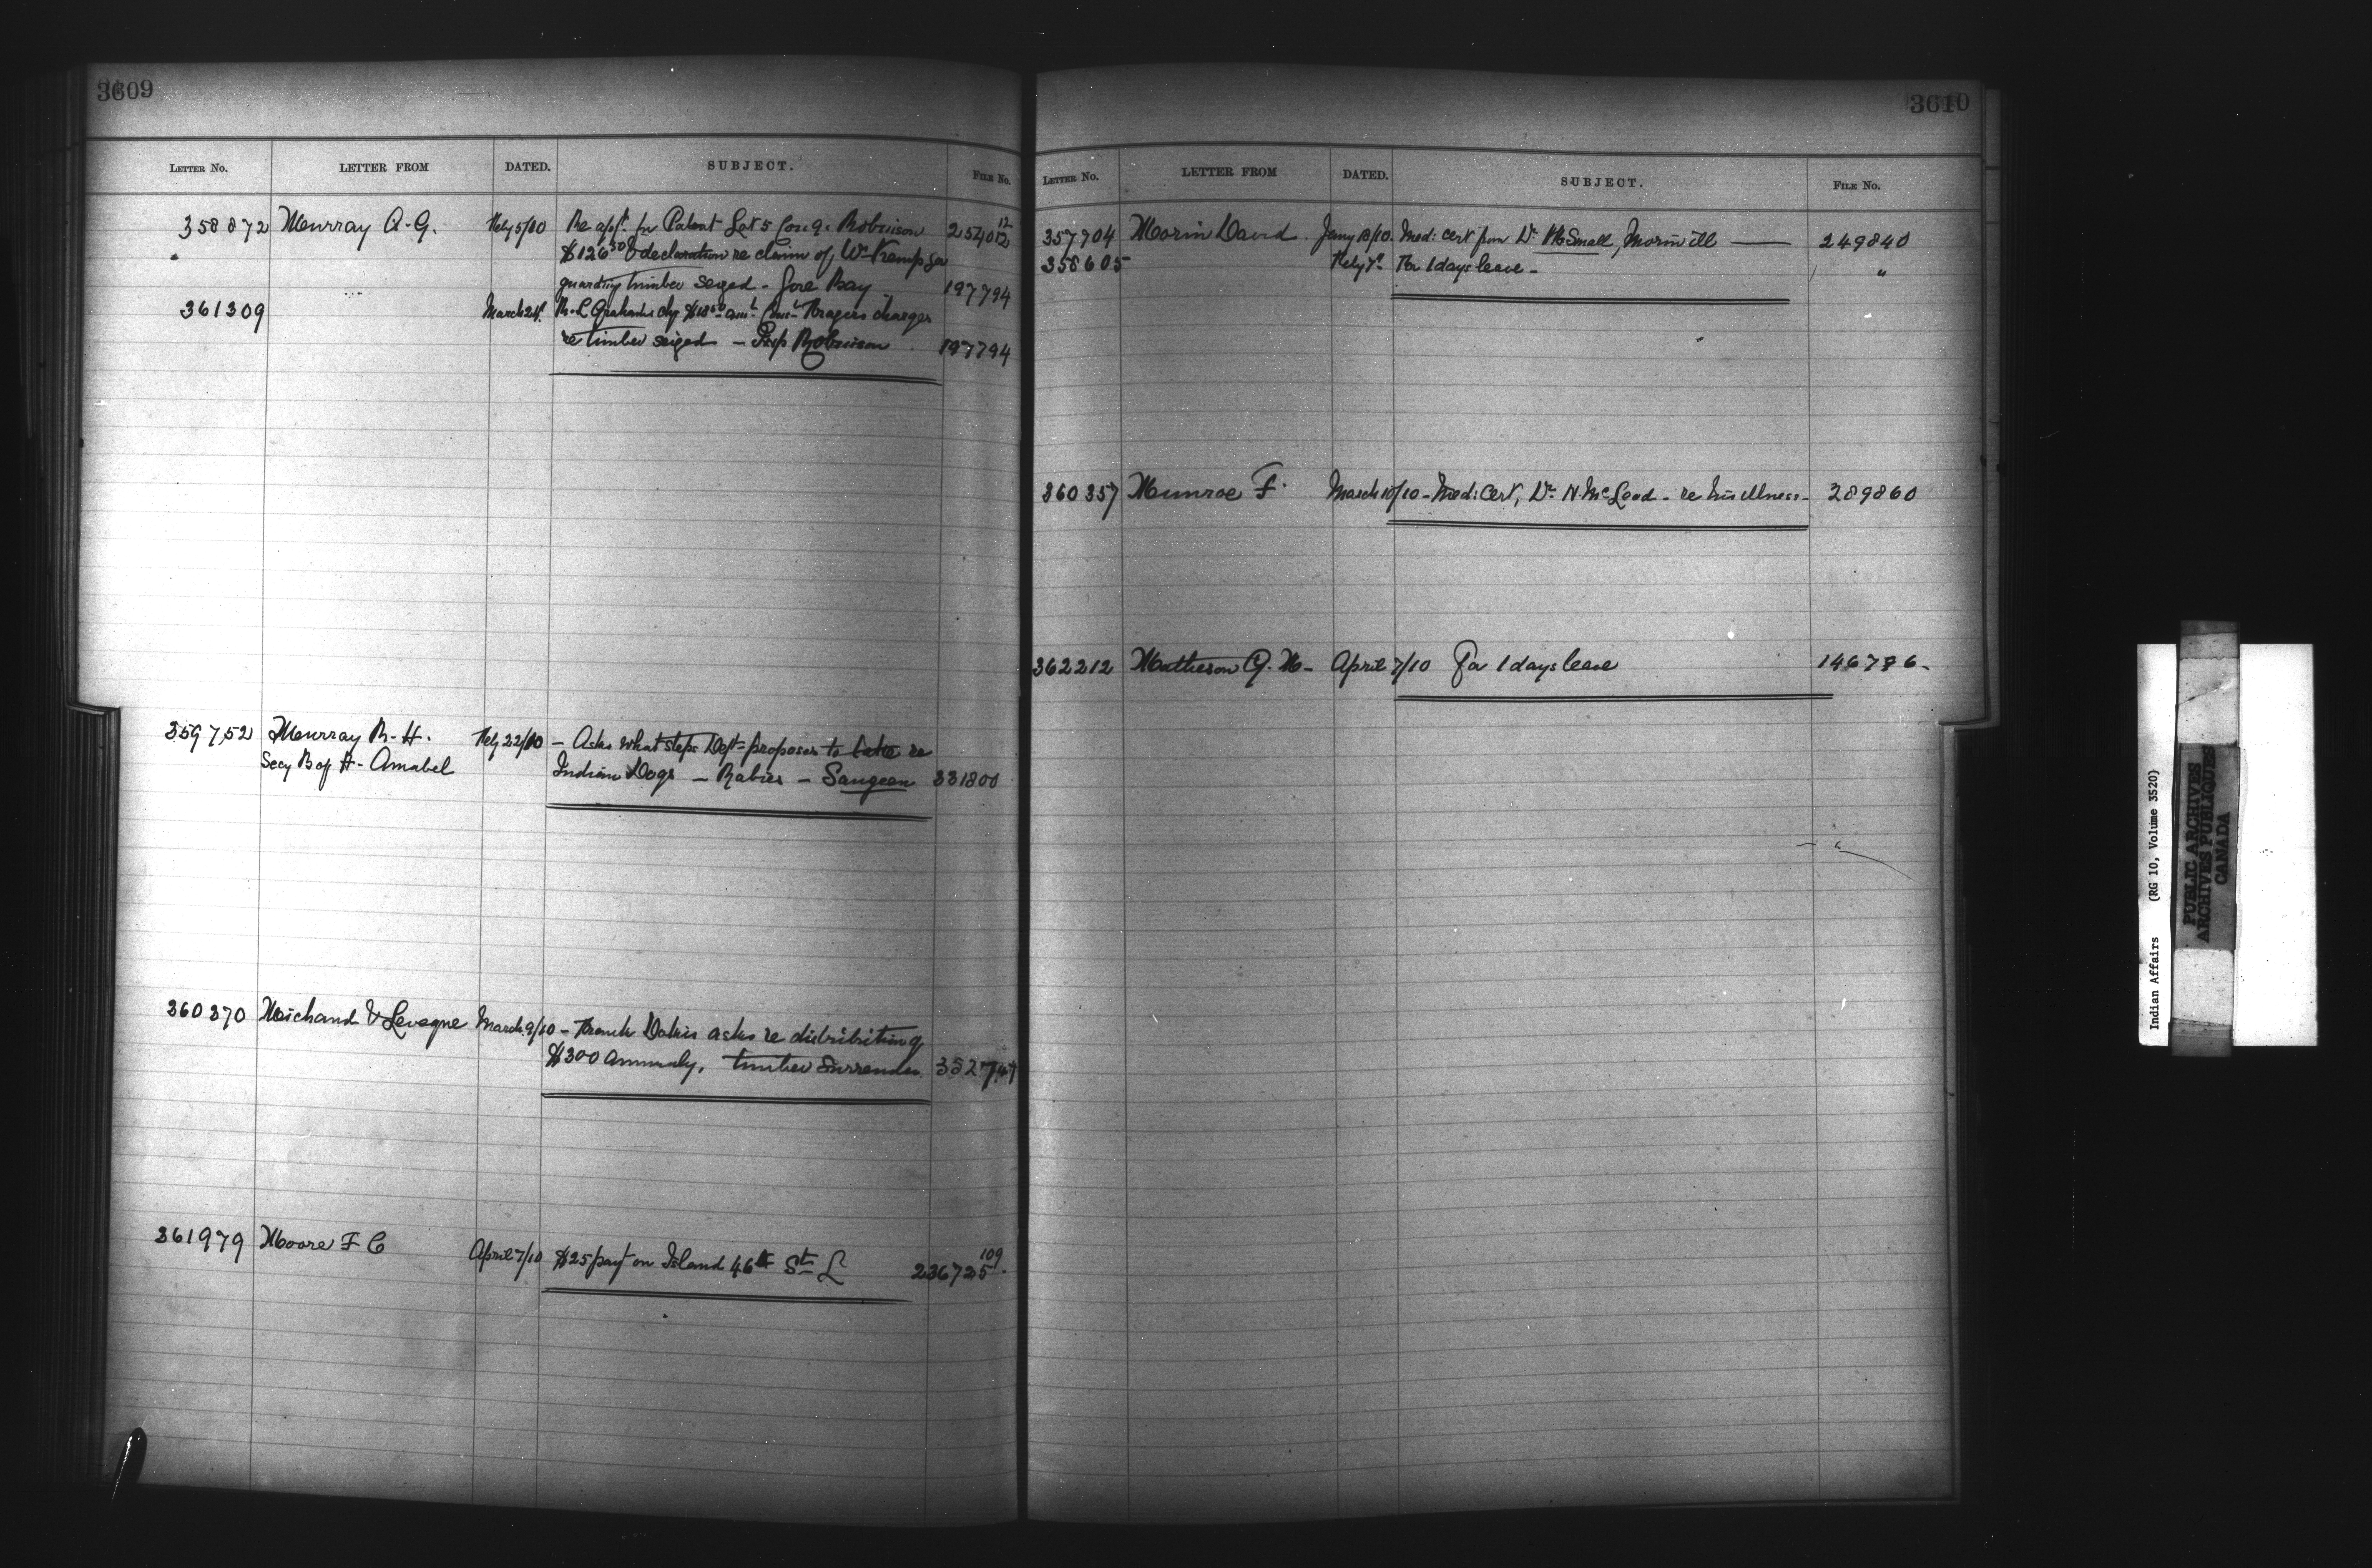 3609
LETTER No. LETTER FROM DATED. SUBJECT. FILE No.
358872 Murray A. G. Feby 5/10 Re appt. for Patent Lot 5 Con 9. Robinson 254012 12
" $126 50 & declaration re claim of Wm Kemp for
guarding timber seized - Gore Bay 197794
361309 March 24 R. L. Graham's chq $18 50 am't charges
re timber seized - Twp Robinson 197794
359752 Murray R. H. Feby 22/10 - Asks what steps Dept proposes to take re
Secy B of H - Amabel Indian Dogs - Rabies - Saugeen 331800
360370 Michaud & Levesque March 9/10 - Frank Dokis asks re distribution of
$300 annualy, timber surrender 352747
361979 Moore F C April 7/10 $25 payt on Island 46 St L 236725 109
3610
LETTER No. LETTER FROM DATED. SUBJECT. FILE No.
357904 Morin David Jany 18/10 Med: cert from Dr. H Small, Morin ill 249840
358605 Feby 7 For 1 days leave - "
360357 Munroe F. March 10/10 - Med: Cert, Dr. N. McLeod - re his illness - 289860
362212 Matheson G. M - April 7/10 For 1 days leave 146776 -
Indian Affairs (RG 10, Volume 3520)
PUBLIC ARCHIVES
ARCHIVES PUBLIQUES
CANADA